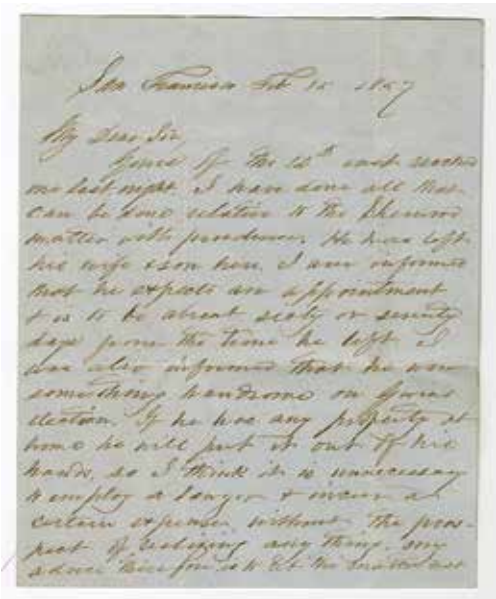 San Francisco Feb 15 1857
My Dear Sir,
Yours of the 12th inst reached
me last night. I have done all that
can be done relative to the
matter with prudence. He has left
his wife & son here. I am informed
that he expects an appointment
& is to be absent sixty or seventy
days from the time he left. I
was also informed that he won
something handsome on
election. If he has any property at
home he will put it out of his
hands, so I think it is unnecessary
to employ a lawyer & incur a
certain expense, without the pros-
pect of realizing any thing. My
advice therefore is to let the matter rest